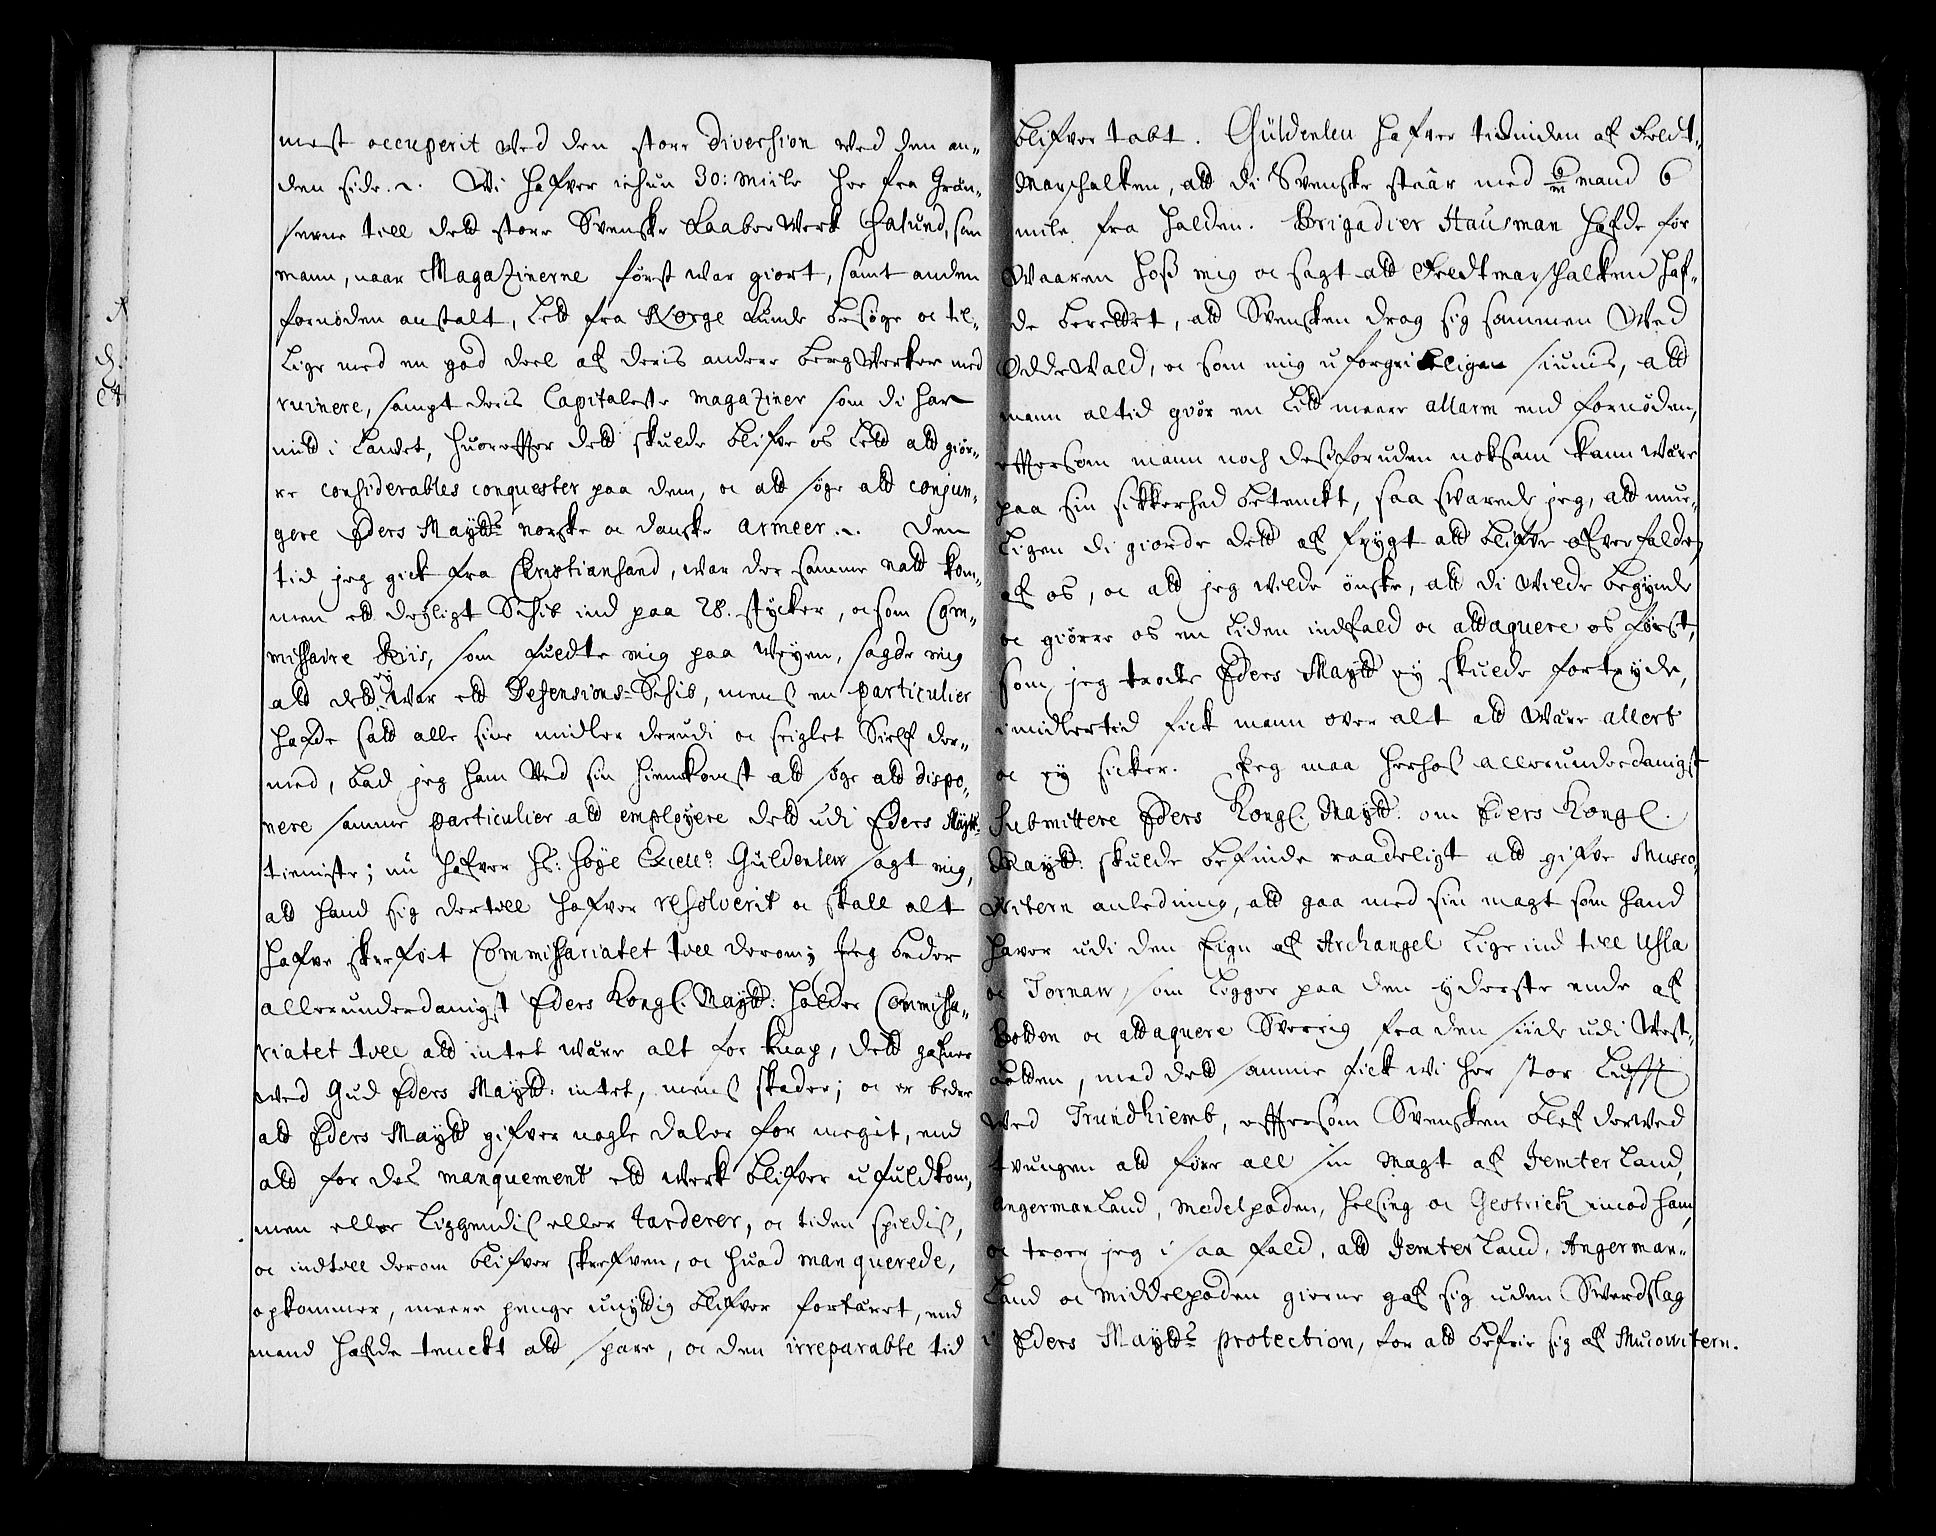 mest occuperit ved den store Diversion ved den an-
den side. Wi hafver ichun 30: Miile her fra Græn-
serne till dett store Svenske Kaaber Werk Falund, som
mann, naar Magazinerne først war giort, samt anden
fornøden anstalt, lett fra Norge kunde besøge oc til-
lige med en god deel af deris andere bergWerker med
ruinere, sampt deris Capitaleste magaziner som di har
mitt i Landet, huoreffter dett skulde blifve os lett att giør-
re considerables conquester paa dem, oc att søge att conjun-
gere Eders Maytts norske oc danske armeer. Den
tid jeg gick fra Christiansand, war der samme natt kom-
men ett deyligt Schib ind paa 28. stycker, oc som Com-
missaire Riis, som fuldte mig paa Weyen, sagde mig
att dett ey war ett Defensions-Schib, mens en particulier
hafde satt alle sine midler derudi oc seiglet Sielf der-
med, bad jeg ham ved sin hiemkomst att søge att dispo-
nere samme particulier att employere dett udi Eders Maytts
tieniste; nu hafver Hs: Høye Excell: Guldenlew sagt mig,
att hand sig dertill hafver resolverit oc skall alt
hafve skrefvit Commissariatet till derom; Jeg beder
allerunderdanigst Eders Kongl. Maytt: holder Commissa-
riatet till att intet være alt for knap, dett gafner
ved Gud Eders Maytt: intet, mens skader; oc er bedre
att Eders Maytt gifver nogle daler for megit, end
att for des manquement ett werk blifver ufuldkom-
men eller liggendis eller tarderer, oc tiden spildis,
oc indtill derom blifver skrefven, oc huad manquerede,
opkommer, meere penge unyttig blifver fortæret, end
mand hafde tenckt att spare, oc den irreparable tid
blifver tabt. Güldenleu hafver tidinden af Feldt-
Marschalken, att di Svenske staar med 6/m mand 6
mile fra Halden. Brigadier Hausman hafde før
Waaren hoss mig oc sagt att Feldtmarschalken haf-
de berettet, att Svensken drog sig sammen Wed
OddeWald, oc som mig uforgribeligen siunis, att
mann altid giør en litt meere allarm end fornøden,
effersom mann noch dessforuden noksam kann være
paa sin sikkerhed betenckt, saa svarede jeg, att mue-
ligen di giorde dett af frygt att blifve ofverfalden
af os, oc att jeg wilde ønske, att di vilde begynde
oc giøre os en liden indfald oc attaquere os først,
som jeg troede Eders Maytt ey skulde fortryde,
imidlertid fick mann over alt att være allert
oc ey sicker. Jeg maa herhos allerunderdanigst
submittere Eders Kongl. Maytt. om Eders Kongl.
Maytt: skulde befinde raadeligt att gifve Musco-
vitern anledning, att gaa med sin magt som hand
haver udi den Eign af Archangel lige ind till Uhla
oc Tornaw, som ligger paa den yderste ende af
Botten oc attaquere Sverrig fra den side udi West-
botten, med dett samme fick wi her stor Lufft
Wed Trundhiemb, effersom Svensken blef derved
tvungen att føre all sin Magt af Jemterland,
Angermanland, Medelpaden, Helsing oc Gestrick imod ham,
oc troer jeg i saa fald, att Jemterland, Angerman-
Land oc Middelpaden gierne gaf sig uden Sverdslag
i Eders Maytts protection, for att befrie sig af Mucowitern.